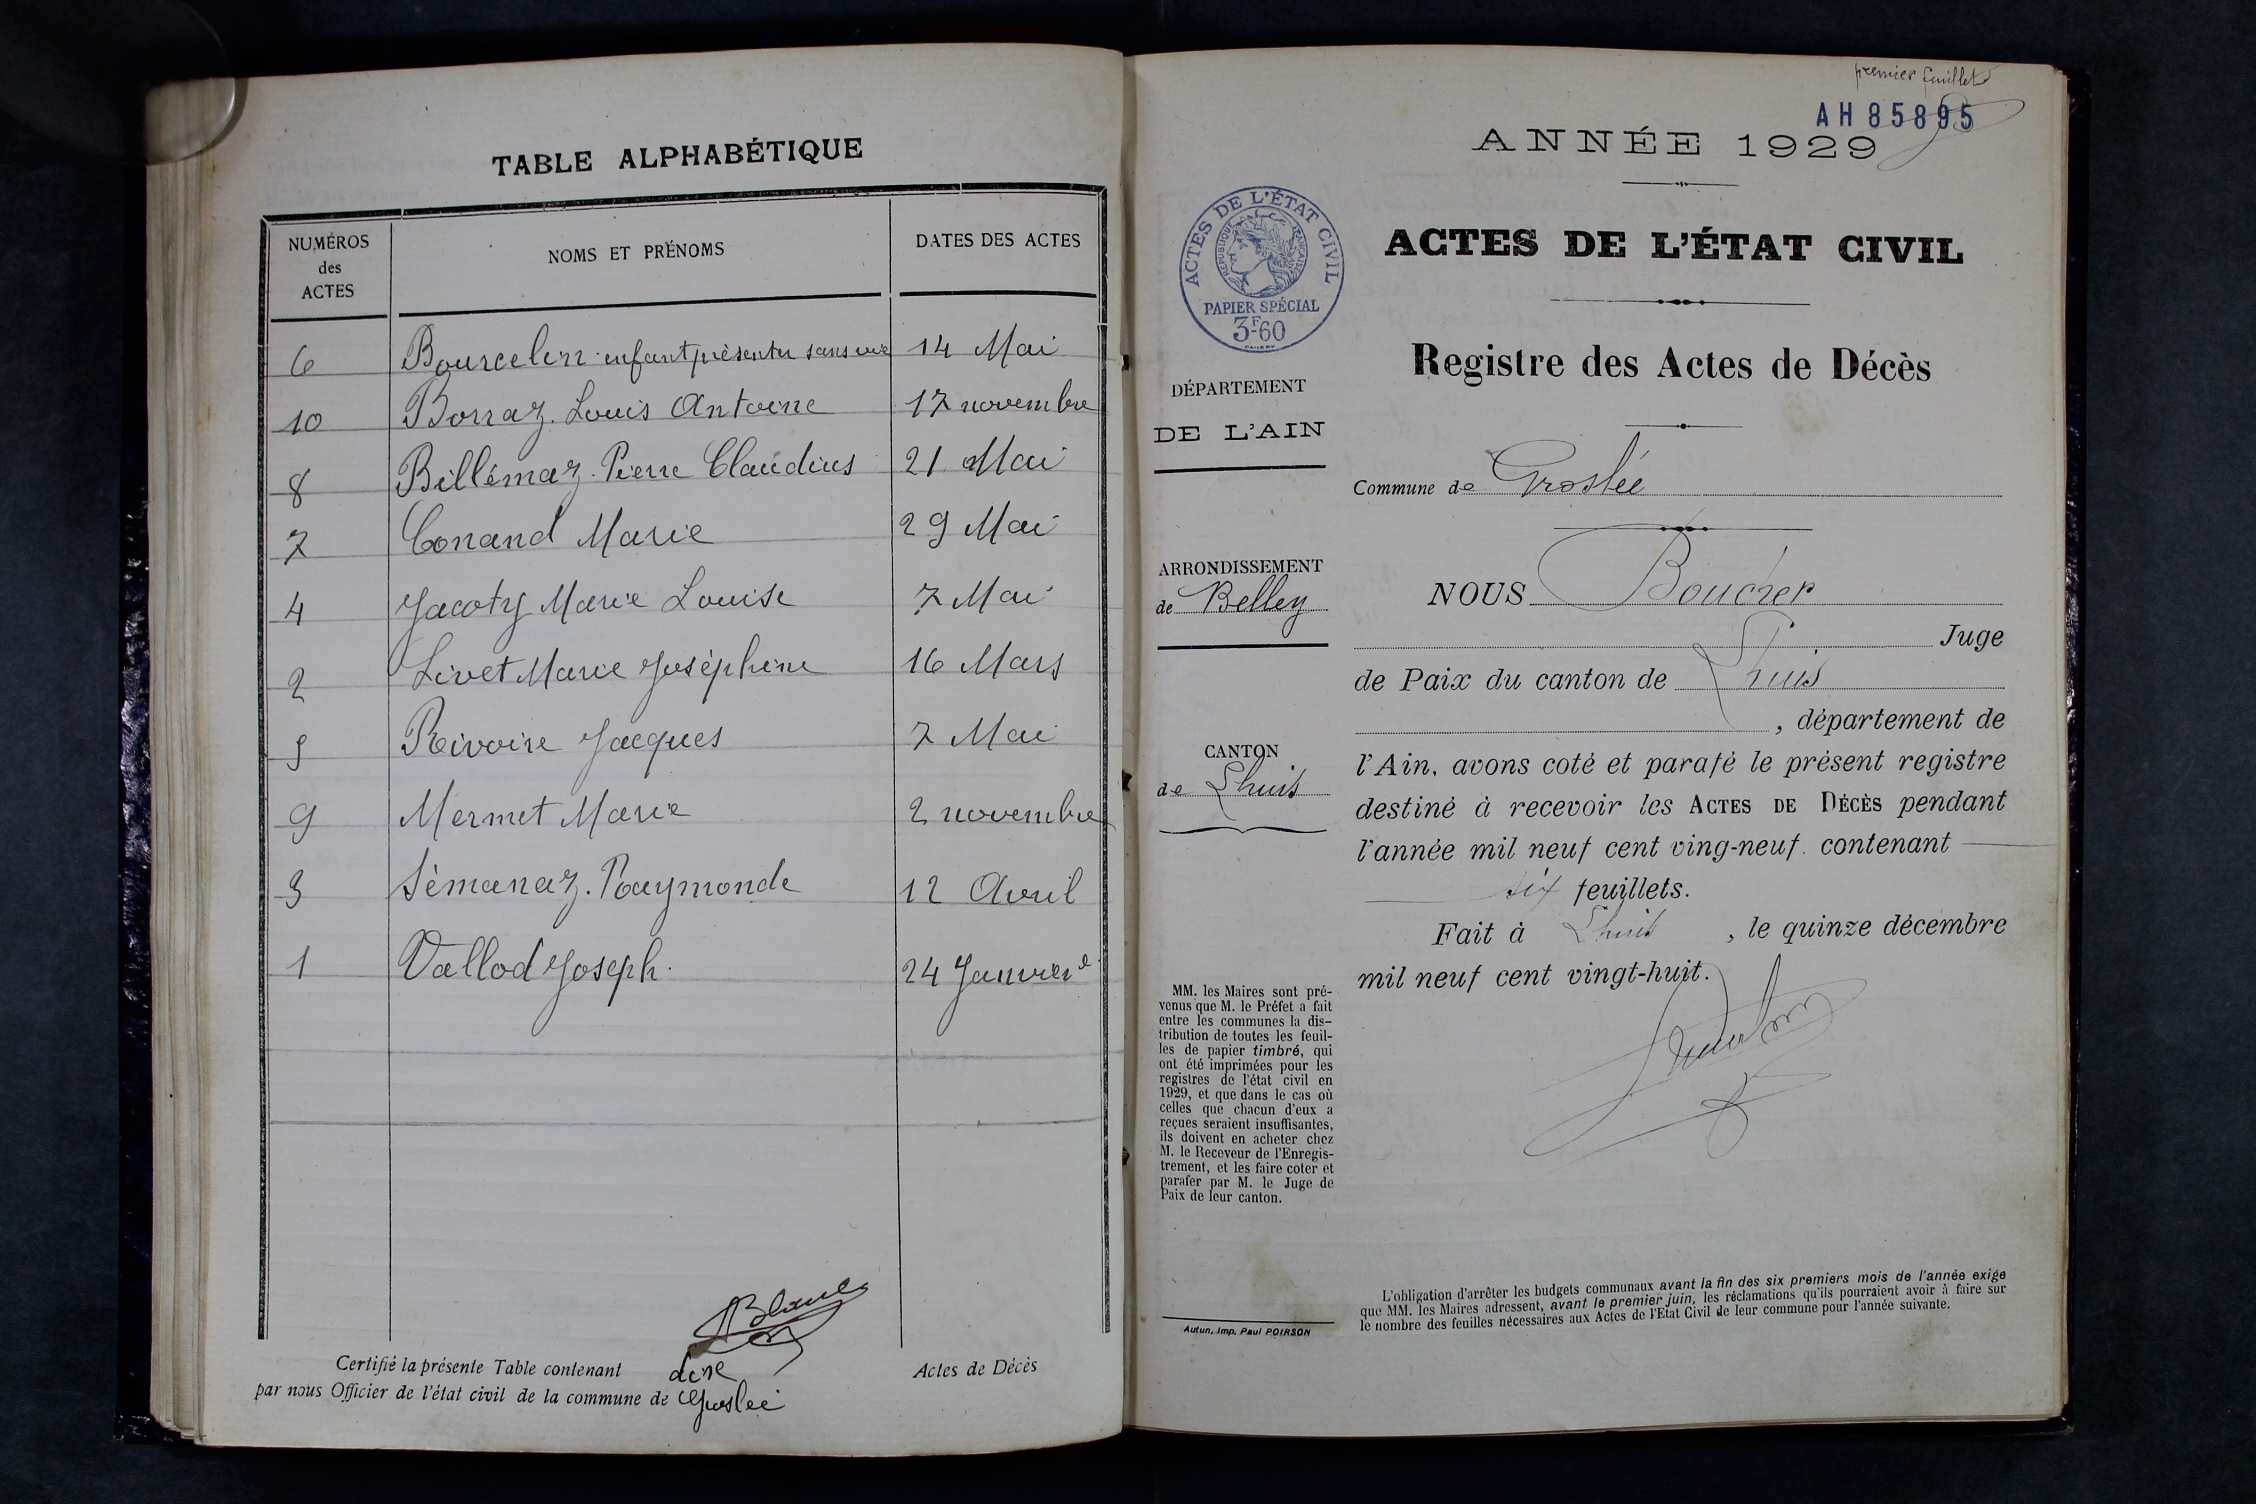 TABLE ALPHABÉTIQUE
NUMÉROS
des
ACTES
NOMS ET PRÉNOMS
DATES DES ACTES
6 Bourcelin enfant présenter sans vie 14 Mai
10 Borraz. Louis Antoine 17 novembre
8 Billémaz. Pierre Claudius 21 Mai
7 Conand Marie 29 Mai
4 Jacoty Marie Louise 7 Mai
2 Livet Marie Joséphine 16 Mars
5 Rivoire Jacques 7 Mai
9 Mermet Marie 2 novembre
3 Sémanaz. Raymonde 12 Avril
1 Vallod Joseph. 24 Janvier
Certifié la présente Table contenant dix Actes de Décès
par nous Officier de l'état civil de la commune de Groslée
premier feuillet
AH 85895
ANNÉE 1929
ACTES DE L'ÉTAT CIVIL
RÉPUBLIQUE FRANÇAISE
PAPIER SPÉCIAL
3F60
ACTES DE L'ÉTAT CIVIL
Registre des Actes de Décès
DÉPARTEMENT
DE L'AIN
Commune de Groslée
ARRONDISSEMENT
de Belley
NOUS Boucher
Juge
de Paix du canton de Lhuis
, département de
CANTON
de Lhuis
l'Ain, avons coté et parafé le présent registre
destiné à recevoir les ACTES DE DÉCÈS pendant
l'année mil neuf cent ving-neuf. contenant
six feuillets.
Fait à Lhuis, le quinze décembre
mil neuf cent vingt-huit.
MM. les Maires sont pré-
venus que M. le Préfet a fait
entre les communes la dis-
tribution de toutes les feuil-
les de papier timbré, qui
ont été imprimées pour les
registres de l'état civil en
1929, et que dans le cas où
celles que chacun d'eux a
reçues seraient insuffisantes,
ils doivent en acheter chez
M. le Receveur de l'Enregis-
trement, et les faire coter et
parafer par M. le Juge de
Paix de leur canton.
Autun, Imp. Paul POIRSON
L'obligation d'arrêter les budgets communaux avant la fin des six premiers mois de l'année exige
que MM. les Maires adressent, avant le premier juin, les réclamations qu'ils pourraient avoir à faire sur
le nombre des feuilles nécessaires aux Actes de l'Etat Civil de leur commune pour l'année suivante.